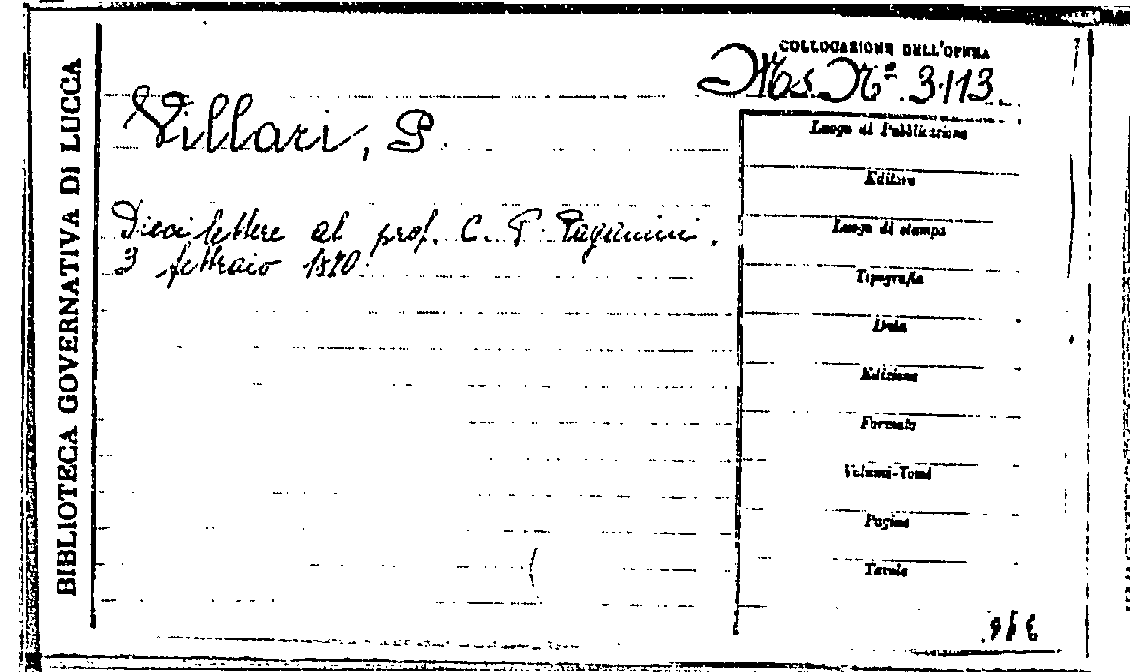 BIBLIOTECA GOVERNATIVA DI LUCCA
COLLOCAZIONE DELL'OPERA
Ms. Nº 3113
Villari, P.
Dieci lettere al prof. C. P. Paganini.
3 febbraio 1870.
Luogo di Pubblicazione
Editore
Luogo di stampa
Tipografia
Data
Edizione
Formato
Volumi-Tomi
Pagine
Tavole